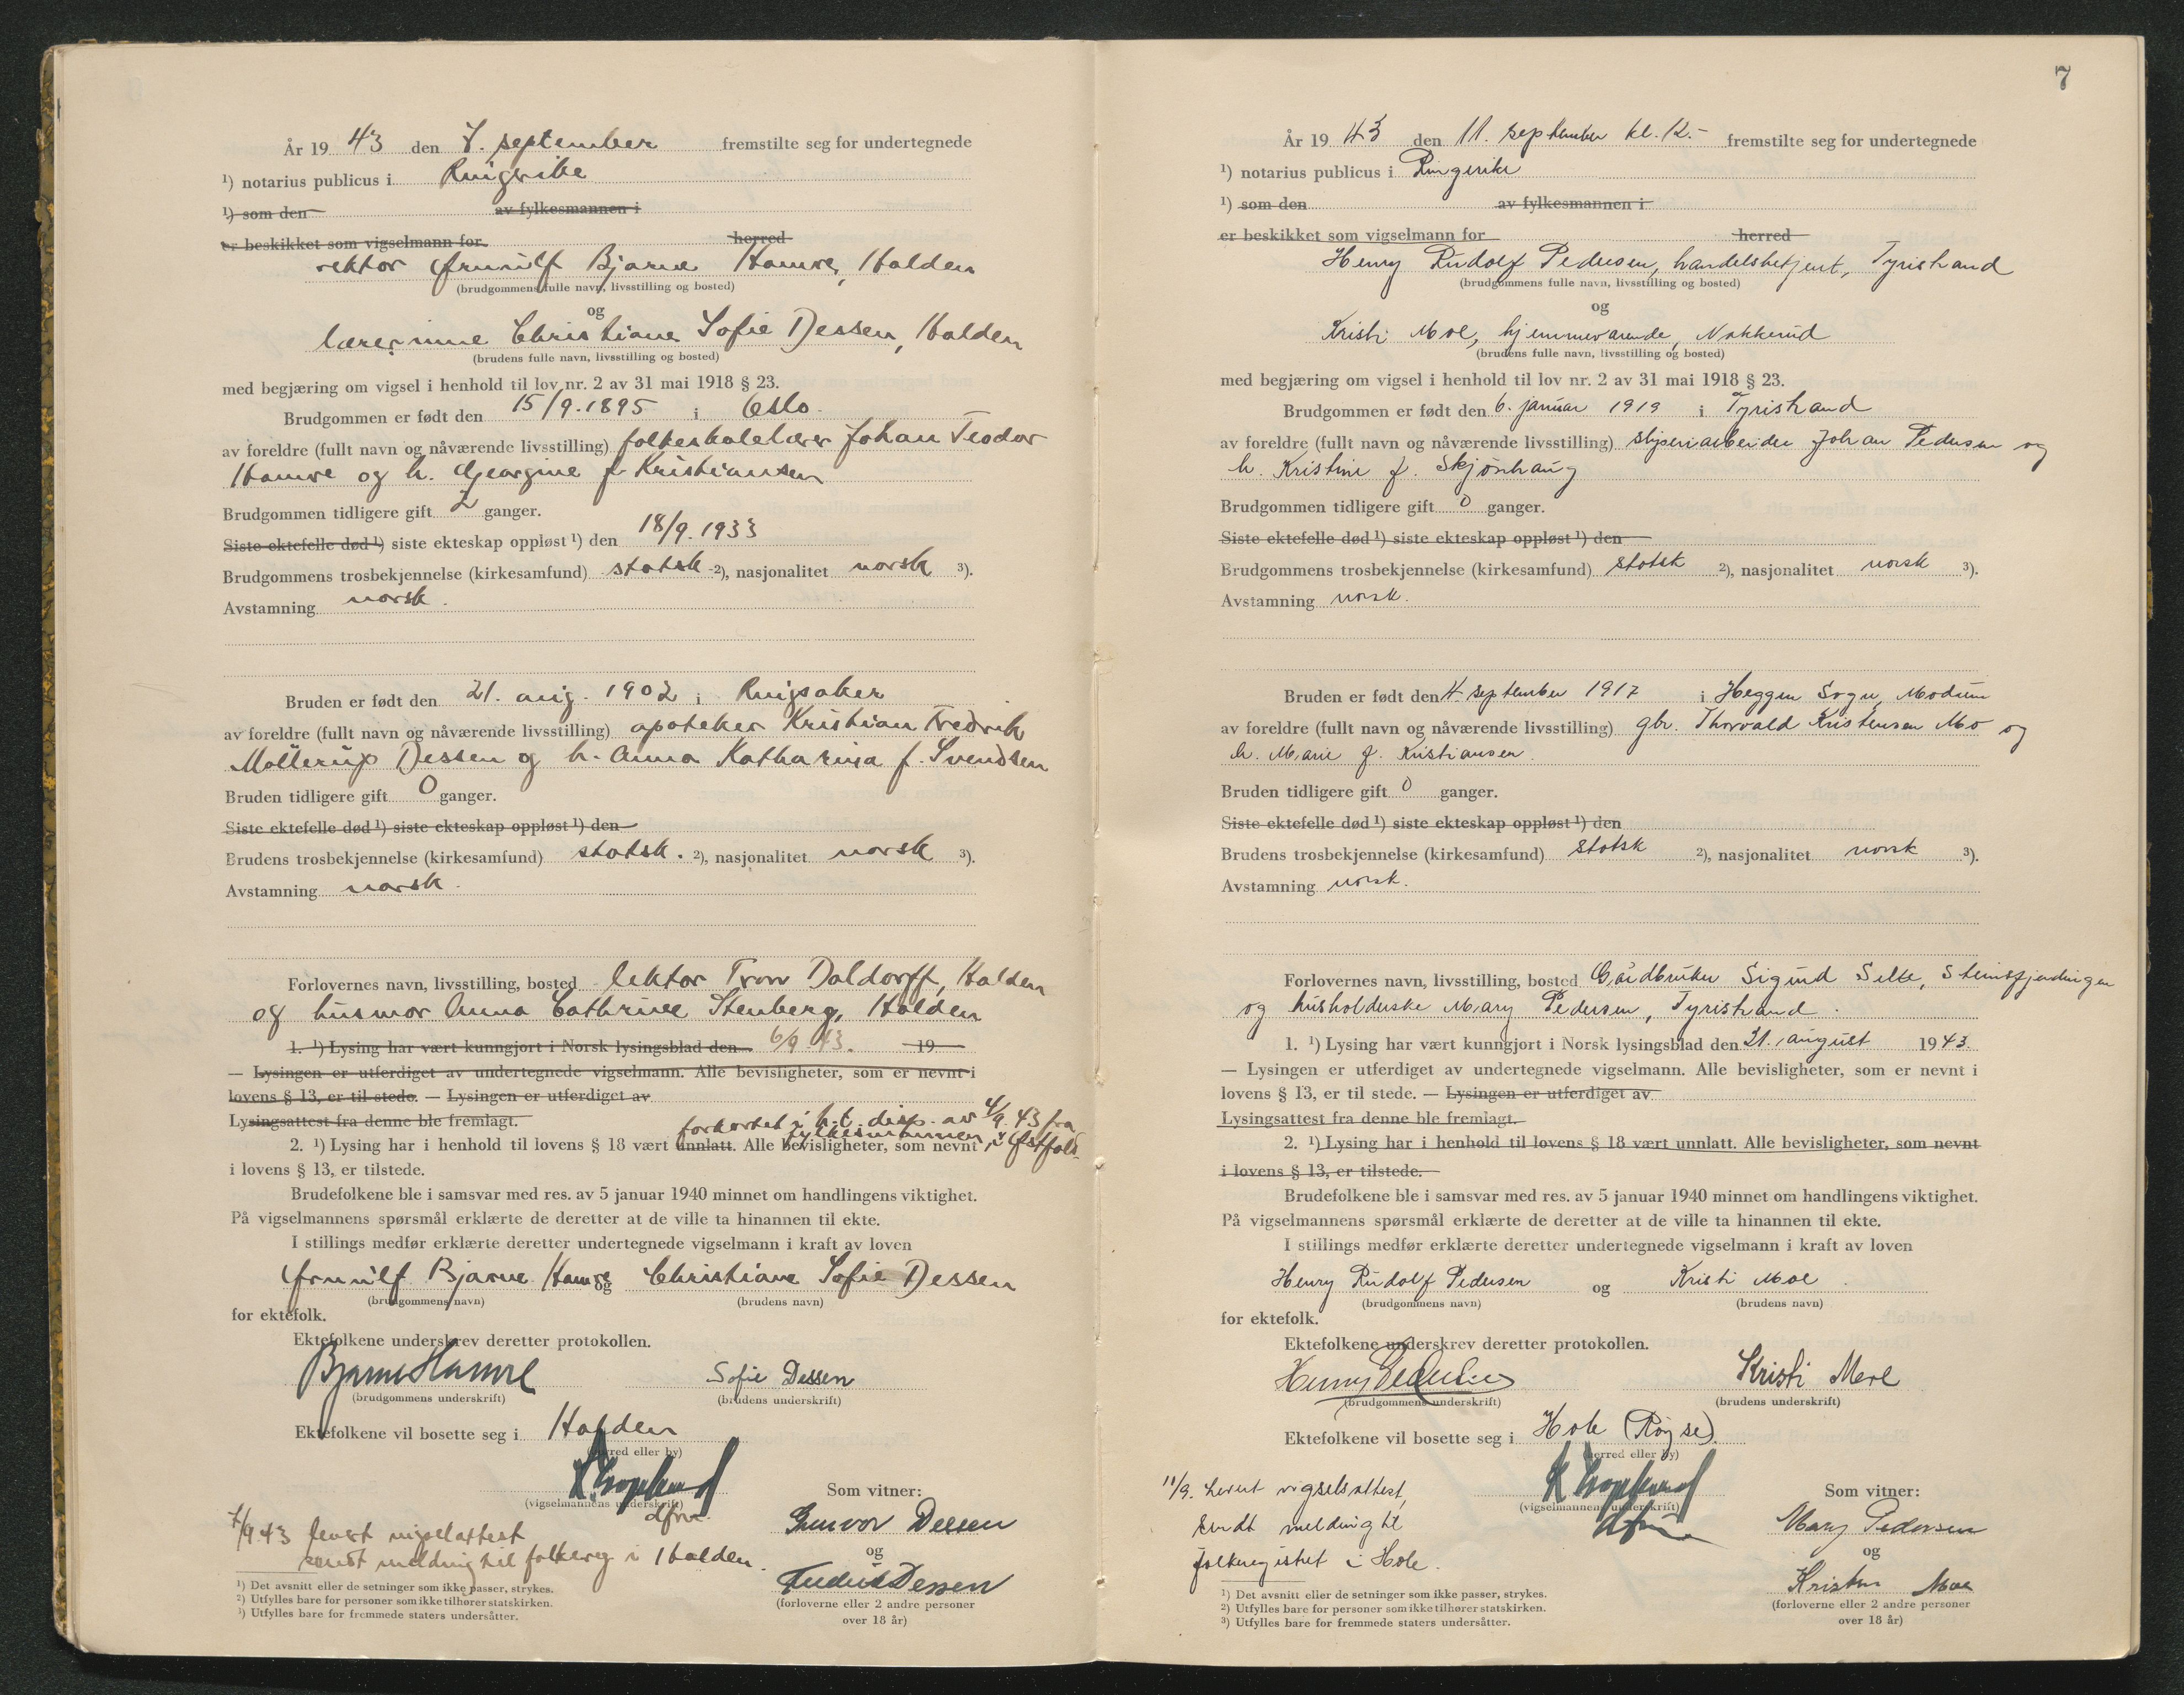 År 19 43 den 7. september fremstilte seg for undertegnede
¹) notarius publicus i Ringerike
¹) som den av fylkesmannen i
er beskikket som vigselmann for herred
rektor Arnulf Bjarne Hamre, Halden
(brudgommens fulle navn, livsstilling og bosted)
og
lærerinne Christiane Sofie Dessen, Halden
(brudens fulle navn, livsstilling og bosted)
med begjæring om vigsel i henhold til lov nr. 2 av 31 mai 1918 § 23.
Brudgommen er født den 15/9.1895 i Oslo.
av foreldre (fullt navn og nåværende livsstilling) folkeskolelærer Johan Teodor
Hamre og h. Georgine f. Kristiansen
Brudgommen tidligere gift 2 ganger.
Siste ektefelle død ¹) siste ekteskap oppløst ¹) den 18/9.1933
Brudgommens trosbekjennelse (kirkesamfund) statsk ²), nasjonalitet norsk ³).
Avstamning norsk.
Bruden er født den 21. aug. 1902 i Ringsaker
av foreldre (fullt navn og nåværende livsstilling) apoteker Kristian Fredrik
Møllerup Dessen og h. Anna Katharina f. Svendsen
Bruden tidligere gift 0 ganger.
Siste ektefelle død ¹) siste ekteskap oppløst ¹) den
Brudens trosbekjennelse (kirkesamfund) statsk. ²), nasjonalitet norsk ³).
Avstamning norsk.
Forlovernes navn, livsstilling, bosted lektor Tron Daldorff, Halden
og husmor Anna Cathrine Stenberg, Halden
1. ¹) Lysing har vært kunngjort i Norsk lysingsblad den 6/9.43. 19
— Lysingen er utferdiget av undertegnede vigselmann. Alle bevisligheter, som er nevnt i
lovens § 13, er til stede. — Lysingen er utferdiget av
Lysingsattest fra denne ble fremlagt.
forkortet i h.t. disp. av 4/9.43 fra
fylkesmannen i Østfold.
2. ¹) Lysing har i henhold til lovens § 18 vært unnlatt. Alle bevisligheter, som nevnt
i lovens § 13, er tilstede.
Brudefolkene ble i samsvar med res. av 5 januar 1940 minnet om handlingens viktighet.
På vigselmannens spørsmål erklærte de deretter at de ville ta hinannen til ekte.
I stillings medfør erklærte deretter undertegnede vigselmann i kraft av loven
Arnulf Bjarne Hamre og Christiane Sofie Dessen
(brudgommens navn) (brudens navn)
for ektefolk.
Ektefolkene underskrev deretter protokollen.
Bjarne Hamre Sofie Dessen
(brudgommens underskrift) (brudens underskrift)
Ektefolkene vil bosette seg i Halden
(herred eller by)
(vigselmannens underskrift)
Som vitner:
7/9.43 levert vigselattest Gunvor Dessen
sendt melding til folkereg i Halden.
og
Fredrik Dessen
(forloverne eller 2 andre personer
over 18 år)
¹) Det avsnitt eller de setninger som ikke passer, strykes.
²) Utfylles bare for personer som ikke tilhører statskirken.
³) Utfylles bare for fremmede staters undersåtter.
7
År 19 43 den 11. september kl. 12.- fremstilte seg for undertegnede
¹) notarius publicus i Ringerike
¹) som den av fylkesmannen i
er beskikket som vigselmann for herred
Henry Rudolf Pedersen, handelsbetjent, Tyristrand
(brudgommens fulle navn, livsstilling og bosted)
og
Kristi Moe, hjemmeværende, Nakkerud
(brudens fulle navn, livsstilling og bosted)
med begjæring om vigsel i henhold til lov nr. 2 av 31 mai 1918 § 23.
Brudgommen er født den 6. januar 1919 i Tyristrand
av foreldre (fullt navn og nåværende livsstilling) sliperiarbeider Johan Pedersen og
h. Kristine f. Skjønhaug
Brudgommen tidligere gift 0 ganger.
Siste ektefelle død ¹) siste ekteskap oppløst ¹) den
Brudgommens trosbekjennelse (kirkesamfund) statsk ²), nasjonalitet norsk ³).
Avstamning norsk.
Bruden er født den 4 september 1917 i Heggen Sogn, Modum
av foreldre (fullt navn og nåværende livsstilling) gbr. Thorvald Kristensen Mo og
h. Marie f. Kristiansen.
Bruden tidligere gift 0 ganger.
Siste ektefelle død ¹) siste ekteskap oppløst ¹) den
Brudens trosbekjennelse (kirkesamfund) statsk ²), nasjonalitet norsk ³).
Avstamning norsk.
Forlovernes navn, livsstilling, bosted Gårdbruker Sigurd Selte, Steinsfjerdingen
og husholderske Mary Pedersen, Tyristrand.
1. ¹) Lysing har vært kunngjort i Norsk lysingsblad den 21. august 1943.
— Lysingen er utferdiget av undertegnede vigselmann. Alle bevisligheter, som er nevnt i
lovens § 13, er til stede. — Lysingen er utferdiget av
Lysingsattest fra denne ble fremlagt.
2. ¹) Lysing har i henhold til lovens § 18 vært unnlatt. Alle bevisligheter, som nevnt
i lovens § 13, er tilstede.
Brudefolkene ble i samsvar med res. av 5 januar 1940 minnet om handlingens viktighet.
På vigselmannens spørsmål erklærte de deretter at de ville ta hinannen til ekte.
I stillings medfør erklærte deretter undertegnede vigselmann i kraft av loven
Henry Rudolf Pedersen og Kristi Moe.
(brudgommens navn) (brudens navn)
for ektefolk.
Ektefolkene underskrev deretter protokollen.
Henry Pedersen Kristi Moe
(brudgommens underskrift) (brudens underskrift)
Ektefolkene vil bosette seg i Hole (Røyse).
(herred eller by)
11/9. Levert vigselsattest,
(vigselmannens underskrift)
Som vitner:
Sendt melding til Mary Pedersen
folkeregistret i Hole.
og
Kristen Moe
(forloverne eller 2 andre personer
over 18 år)
¹) Det avsnitt eller de setninger som ikke passer, strykes.
²) Utfylles bare for personer som ikke tilhører statskirken.
³) Utfylles bare for fremmede staters undersåtter.